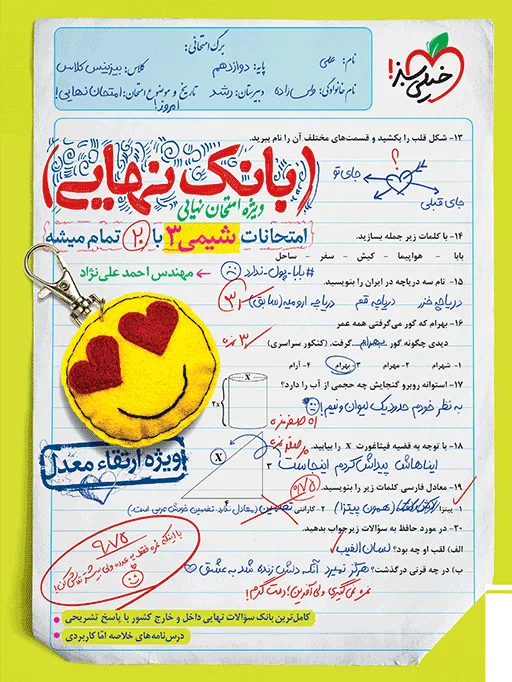 خیلی سبز!
برگ امتحانی:
نام: علی
پایه: دوازدهم
کلاس: بیزینس کلاس
نام خانوادگی:
دبیرستان: رشد
تاریخ و موضوع امتحان: امتحان نهایی!
امروز!
۱۳- شکل قلب را بکشید و قسمت‌های مختلف آن را نام ببرید.
؟
جای تو
جای قبلی
(بانک نهایی)
ویژه امتحان نهایی
امتحانات شیمی ۳ با ۲۰ تمام میشه
مهندس احمد علی‌نژاد
۱۴- با کلمات زیر جمله بسازید.
بابا - هواپیما - کیش - سفر - ساحل
#بابا-پول-ندارد
۱۵- نام سه دریاچه در ایران را بنویسید.
دریاچه خزر دریاچه قم دریاچه ارومیه (سابق)
۱۶- بهرام که گور می‌گرفتی همه عمر
دیدی چگونه گور بهرام گرفت. (کنکور سراسری)
۱- شهرام ۲- مهرام ۳- بهرام ۴- آرام
۱۷- استوانه روبرو گنجایش چه حجمی از آب را دارد؟
به نظر خودم حدود یک لیوان و نیم!
X
2X
۱۸- با توجه به قضیه فیثاغورث X را بیابید.
ایناهاش پیداش کردم اینجاست
X
۳
۴
ویژه ارتقاء معدل
۱۹- معادل فارسی کلمات زیر را بنویسید.
۰/۷۵
۱- پیتزا (همون پیتزا) ۲- گارانتی تضمین
(معادل ندارد. تضمین خودش عربی است.)
۲۰- در مورد حافظ به سؤالات زیر جواب بدهید.
الف) لقب او چه بود؟ لسان الغیب
ب) در چه قرنی درگذشت؟ هرگز نمیرد آنکه دلش زنده شد به عشق
نمره نمی‌گیری ولی آفرین؛ دمت گرم!
۹/۷۵
کامل‌ترین بانک سؤالات نهایی داخل و خارج کشور با پاسخ تشریحی
درس‌نامه‌های خلاصه امّا کاربردی